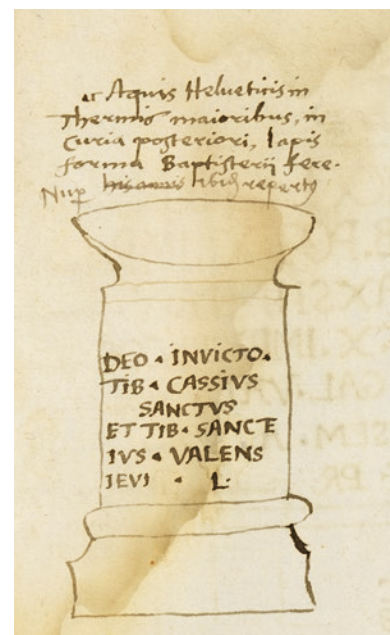 Aquis Helveticis in
Thermis maioribus, in
curia posteriori, lapis
forma Baptisterii fere.
Nup his annis ibidē repertꝯ
DEO · INVICTO ·
TIB · CASSIVS
SANCTVS
ET TIB · SANCTE
IVS · VALENS
IEVI · L ·